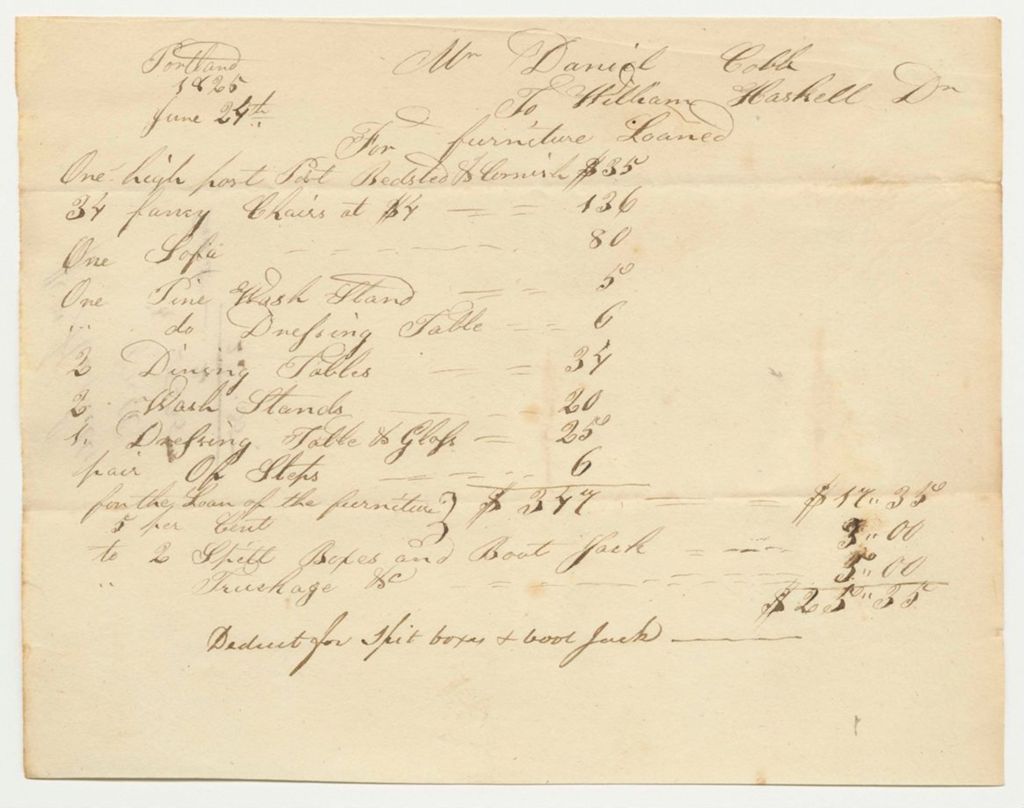 Portland
1825
June 24th
Mr Daniel Cobb
To William Haskell Dr
For furniture Loaned
One high post Bedsted & Cornish $35
34 fancy Chairs at $4 136
One Sofa 80
One Pine Wash Stand 5
" do Dressing Table 6
2 Dining Tables 34
2 Wash Stands 20
1 Dressing Table & Glass 25
pair Of Steps 6
for the Loan of the furniture } $ 347 $ 17"35
5 per Cent
to 2 Spitt Boxes and Boot Jack 3"00
" Truckage &c 5"00
$ 25"35
Deduct for Spit boxes & boot Jack